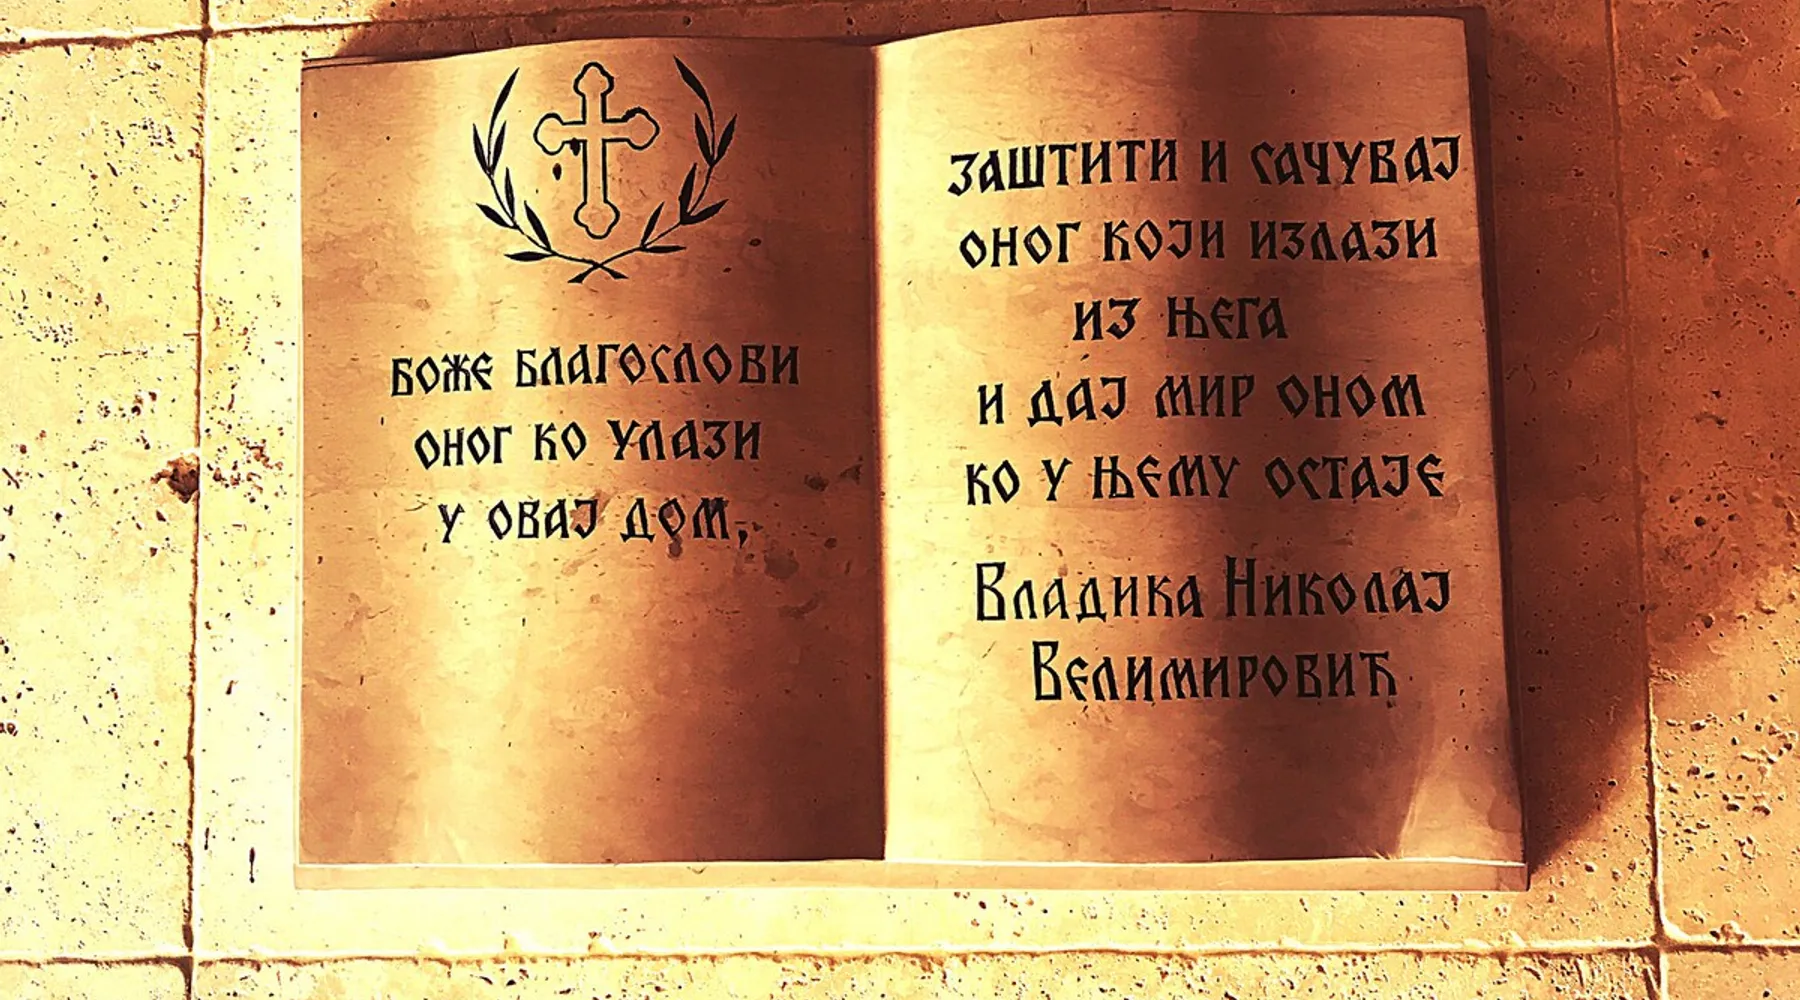 БОЖЕ БЛАГОСЛОВИ
ОНОГ КО УЛАЗИ
У ОВАЈ ДОМ,
ЗАШТИТИ И САЧУВАЈ
ОНОГ КОЈИ ИЗЛАЗИ
ИЗ ЊЕГА
И ДАЈ МИР ОНОМ
КО У ЊЕМУ ОСТАЈЕ
ВЛАДИКА НИКОЛАЈ
ВЕЛИМИРОВИЋ